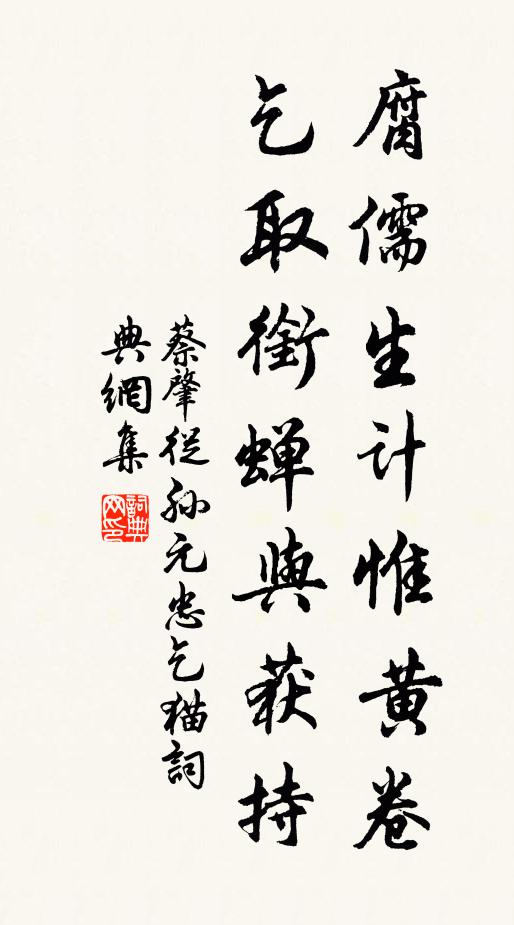 腐儒生计惟黄卷
乞取衔蝉与获持
蔡肇从孙元忠乞猫词
典网集
词典网印